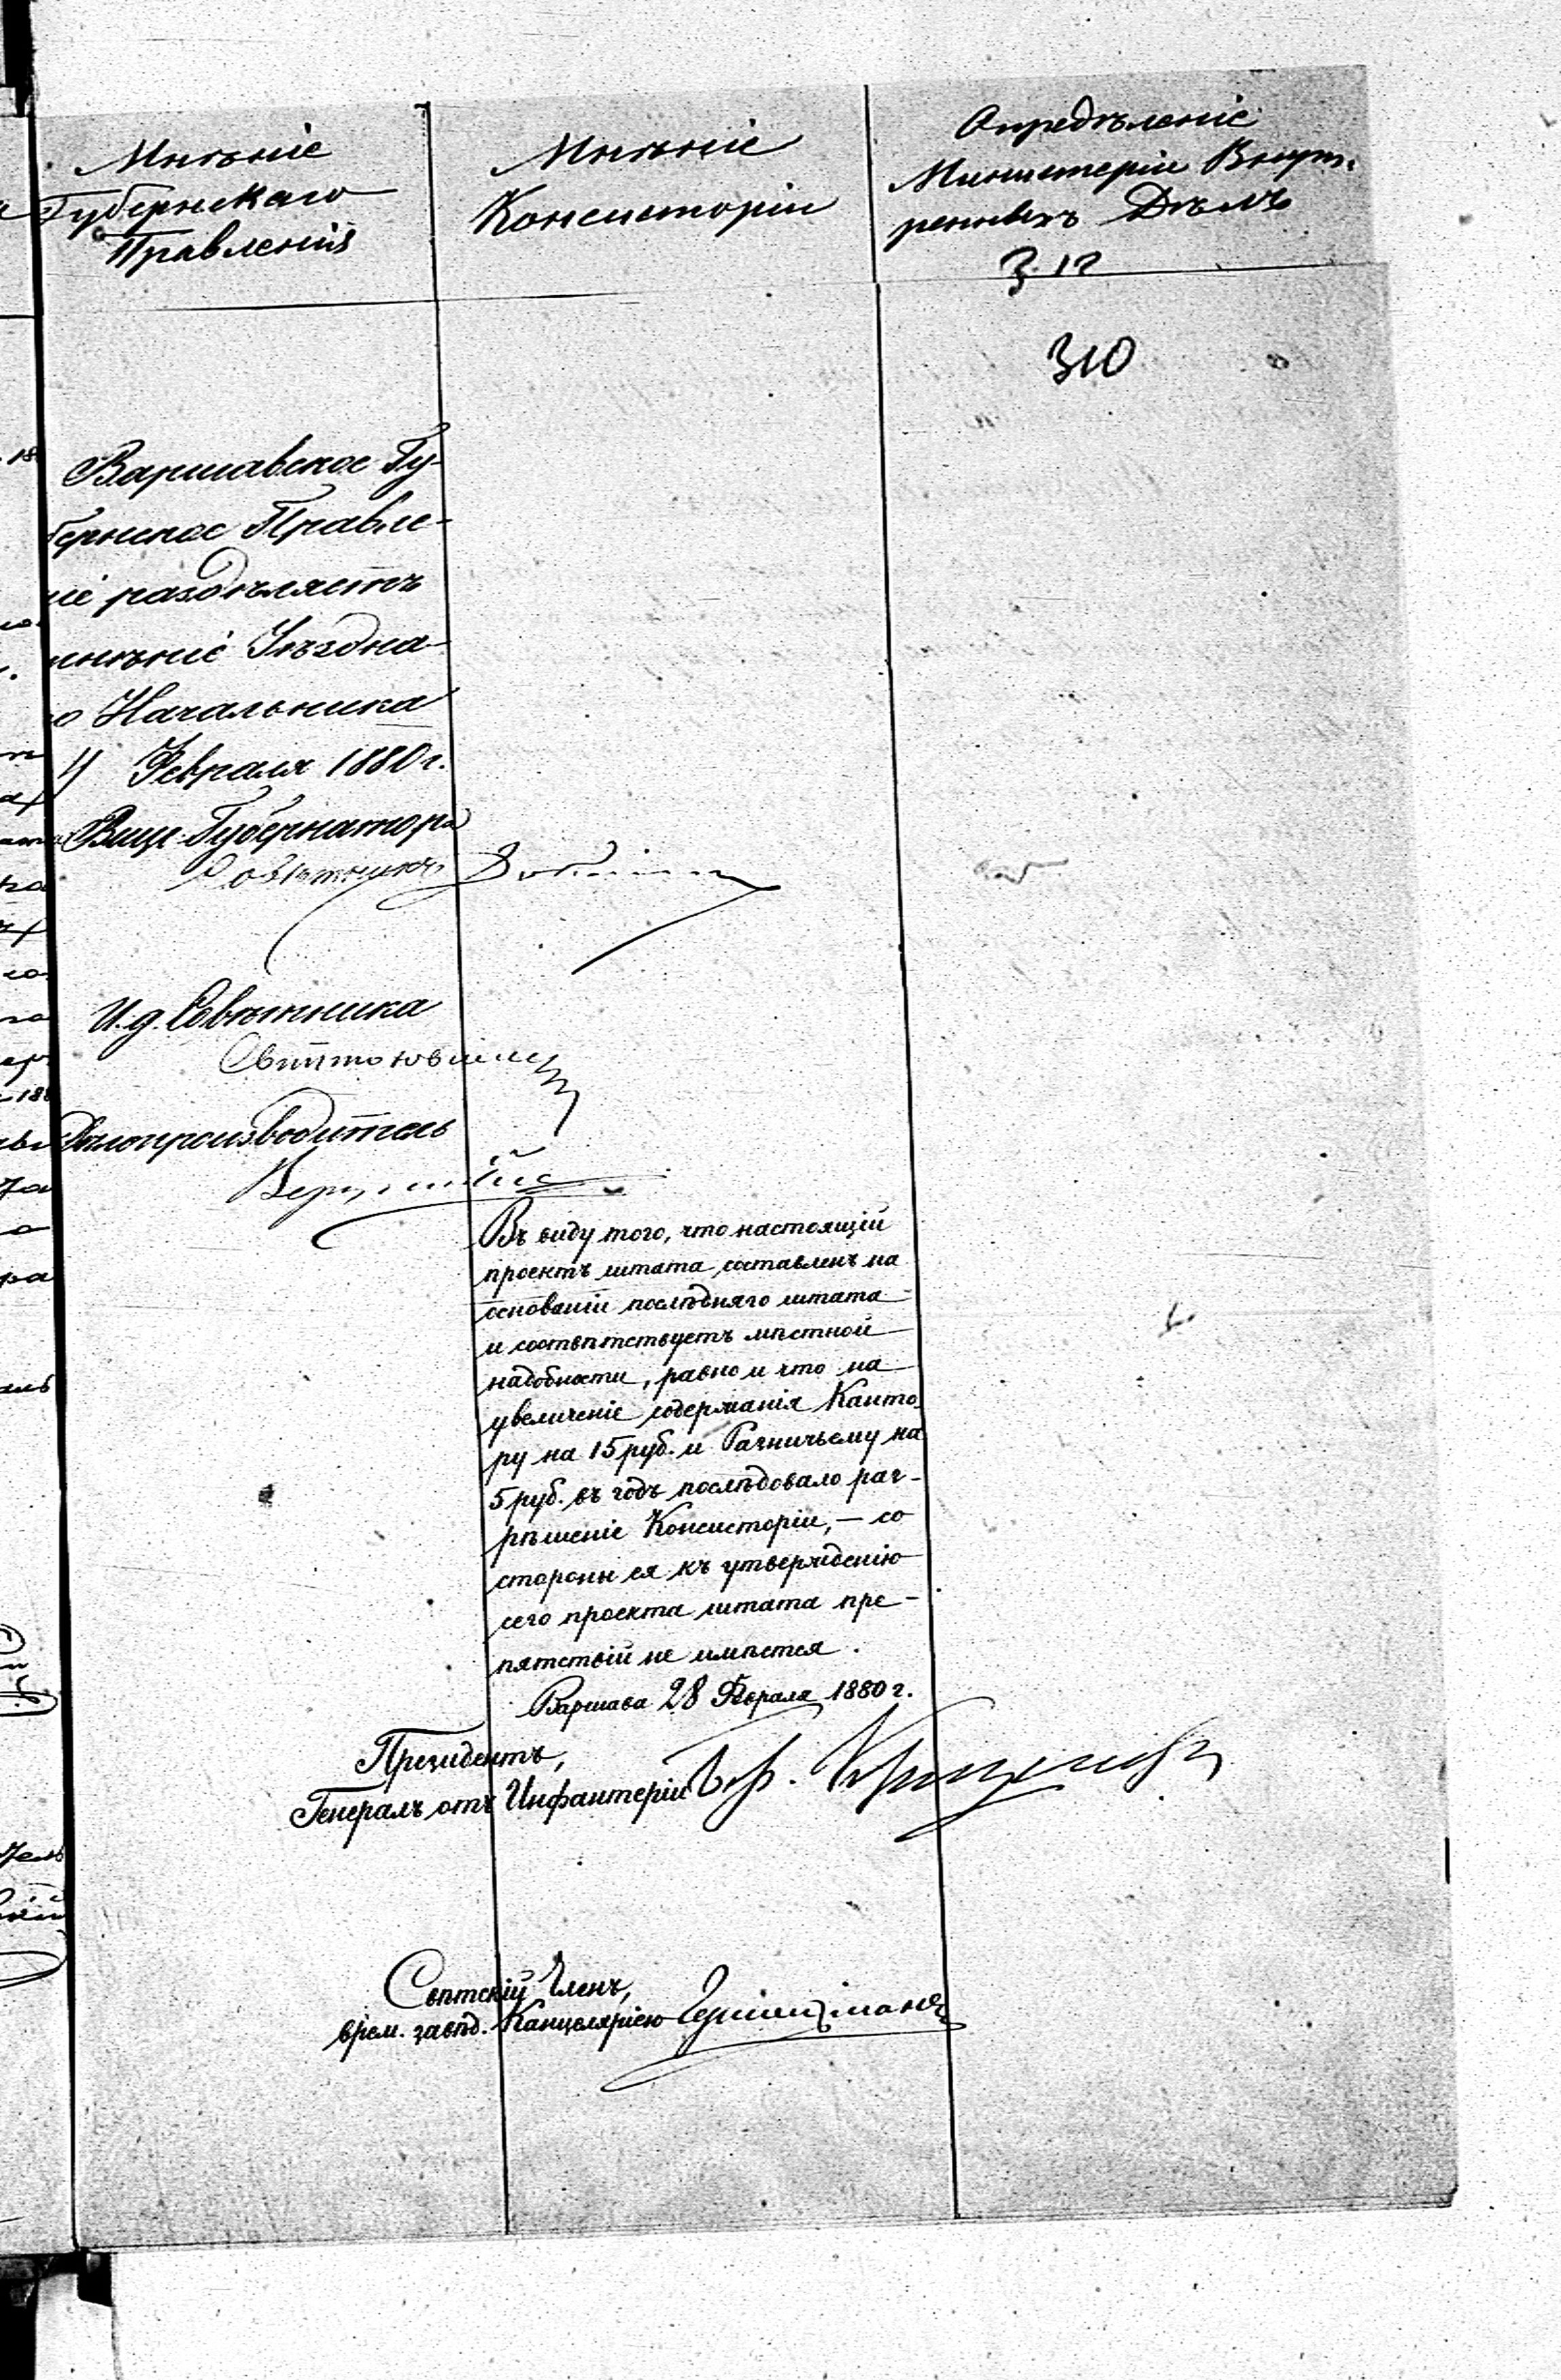 Мнѣніе
Губернскаго
Правленія
Мнѣніе
Консисторіи
Опредѣленіе
Министеріи Внут-
ренныхъ Дѣлъ
310
Варшавское Гу-
бернское Правле-
ніе раздѣляетъ
мнѣніе Уѣздна-
го Начальника
Февраля 1880 г.
Вице-Губернатора
Совѣтникъ
И. д. Совѣтника
Дѣлопроизводитель
Въ виду того, что настоящій
проектъ штата составленъ на
основаніи послѣдняго штата
и соотвѣтствуетъ мѣстной
надобности, равно и что на
увеличеніе содержанія Канто-
ру на 15 руб. и Рачничьему на
5 руб. въ годъ послѣдовало раз-
рѣшеніе Консисторіи, — со
стороны ея къ утвержденію
сего проекта штата пре-
пятствій не имѣется.
Варшава 28 Февраля 1880 г.
Президентъ,
Генералъ отъ Инфантеріи
Свѣтскій Членъ,
врем. завѣд. Канцеляріею